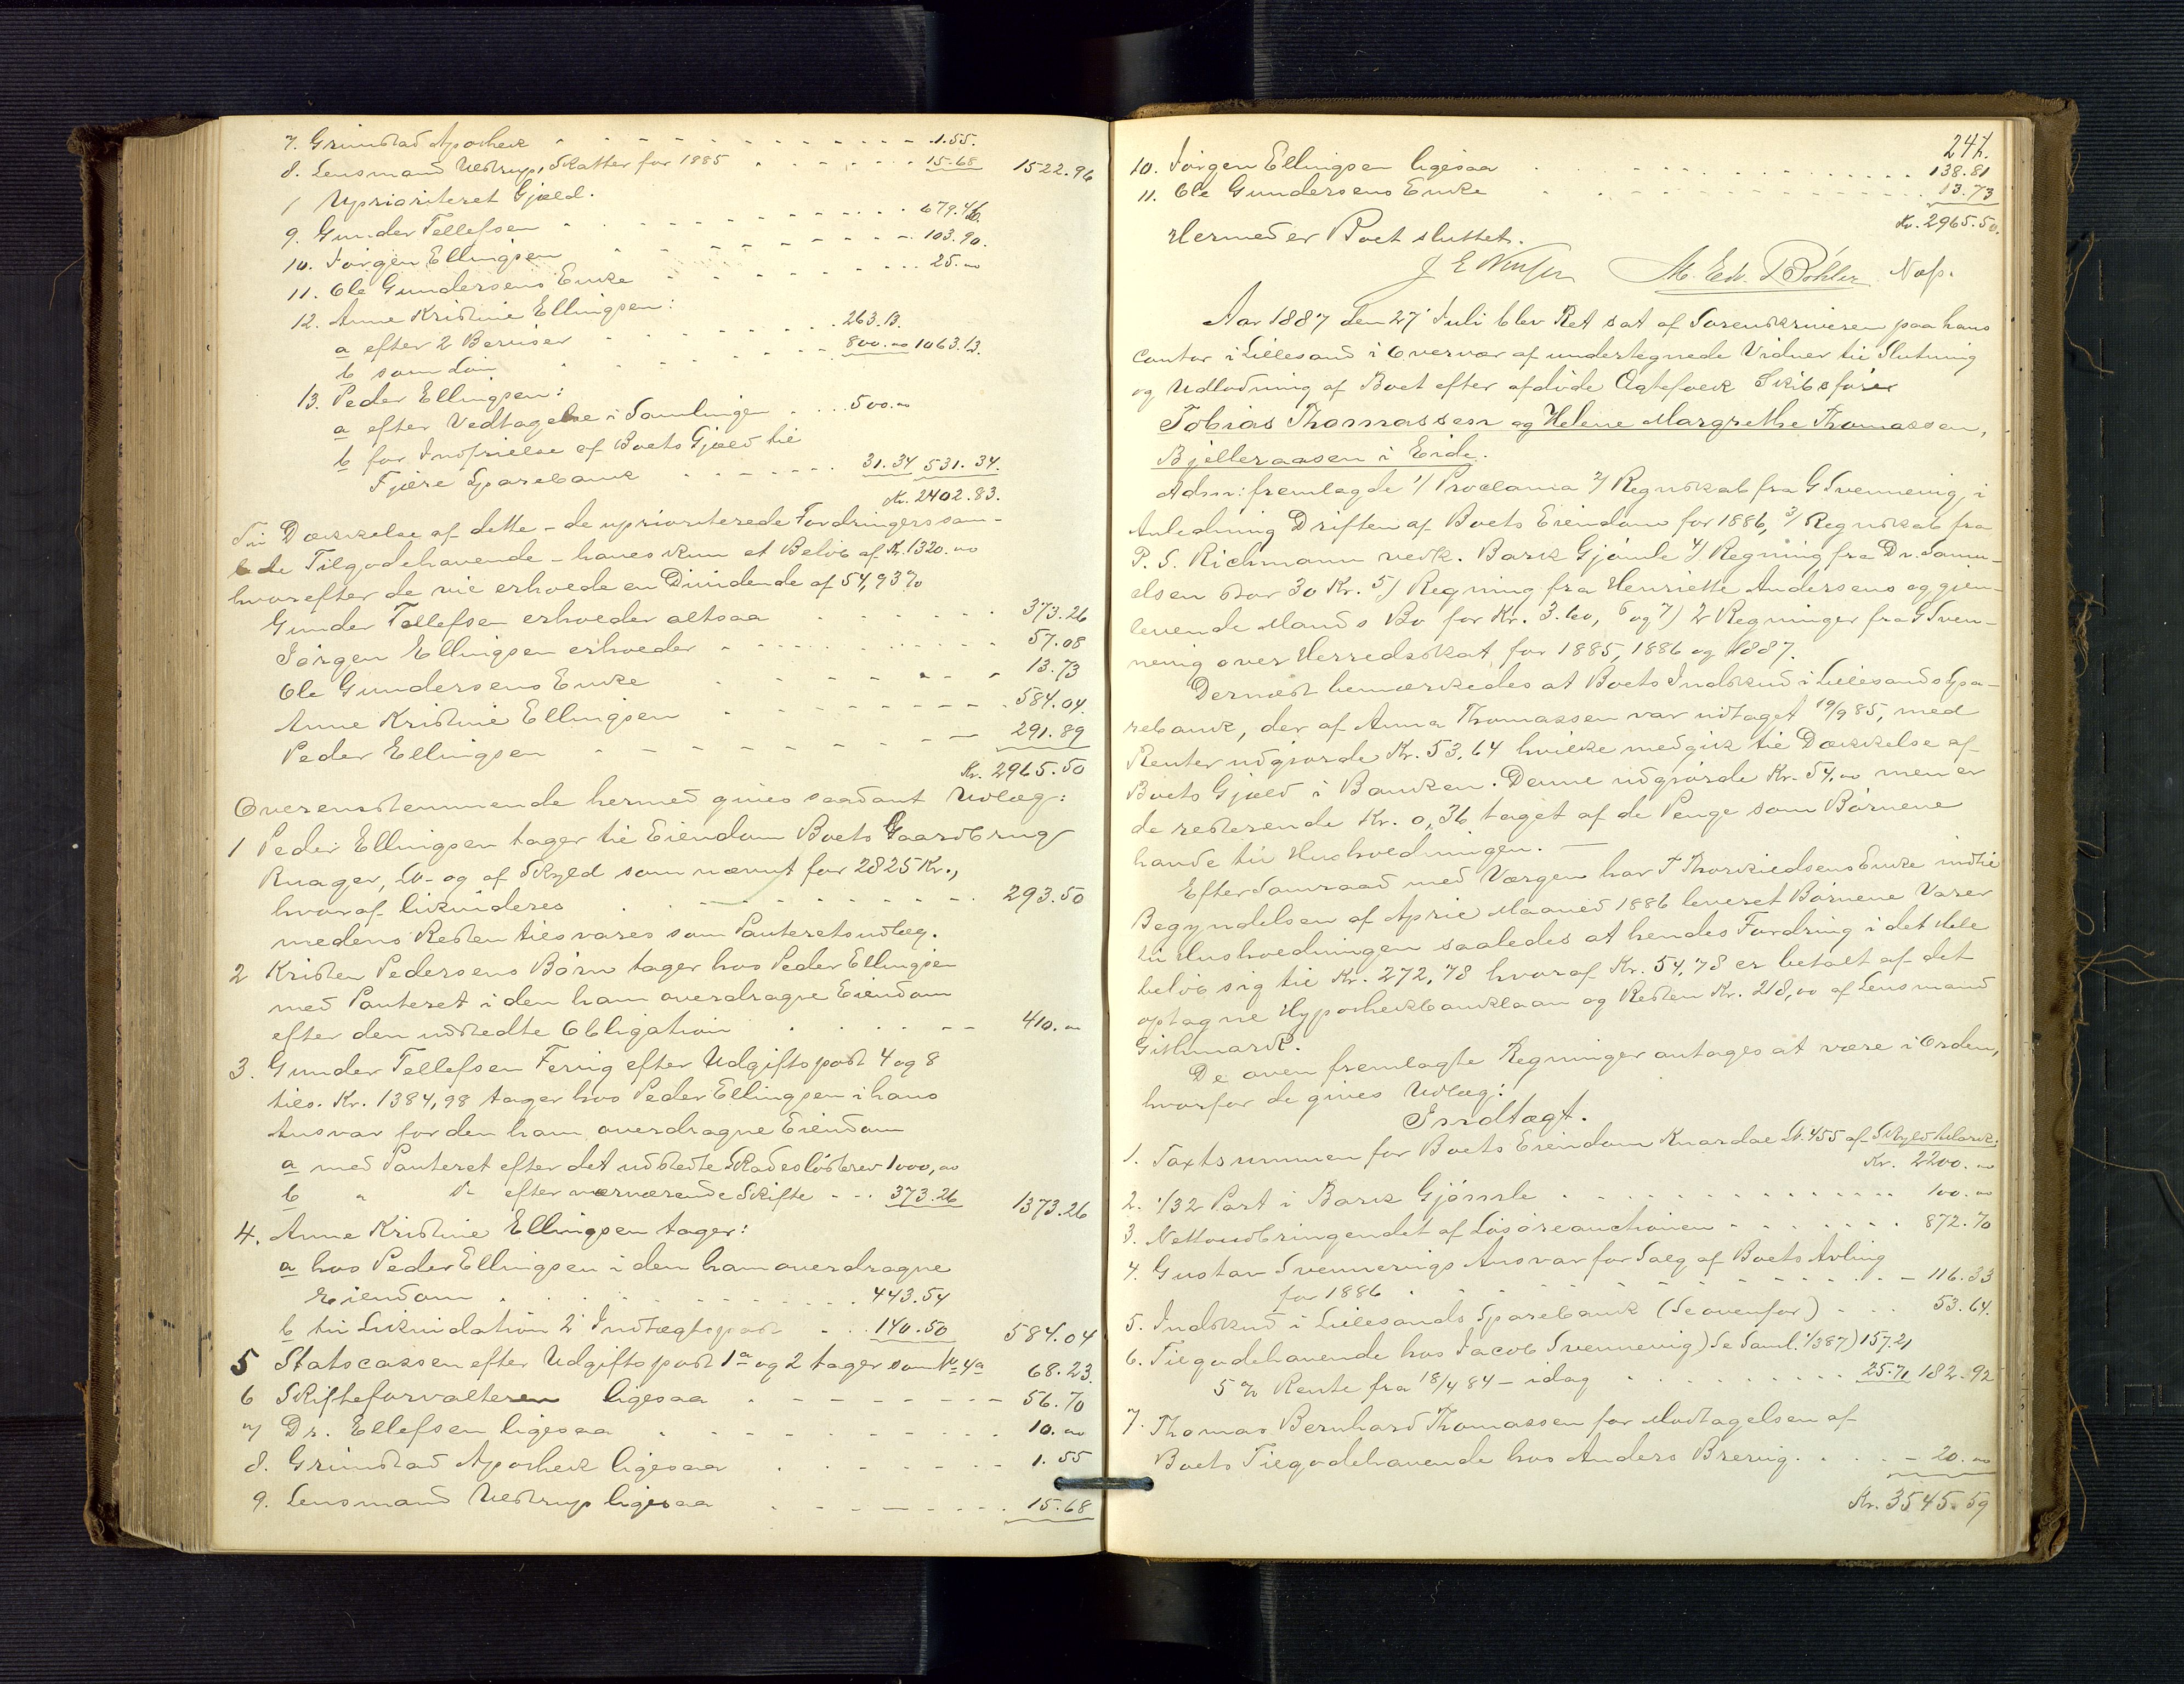 7. Grimstad Apothek 1.55.
8. Lensmand Ustrup, Skatter for 1885 15.68 1522.96
/ Uprioriteret Gjæld.
9. Gunder Tellefsen 679.46.
10. Jörgen Ellingsen 103.90.
11. Ole Gundersens Enke 25.00
12. Anne Kristine Ellingsen:
a efter 2 Beviser 263.13.
b som Lön 800.00 1063.13.
13. Peder Ellingsen:
a efter Vedtagelse i Samlingen 500.00
b for Indfrielse af Boets Gjæld til
Fjære Sparebank 31.34 531.34.
Kr. 2402.83.
Til Dækkelse af dette - de uprioriterede Fordringers sam-
lede Tilgodehavende - haves kun et Belöb af Kr. 1320.00
hvorefter de vil erholde en Dividende af 54,93 %
Gunder Tellefsen erholder altsaa 373.26
Jörgen Ellingsen erholder 57.08
Ole Gundersens Enke 13.73
Anne Kristine Ellingsen 584.04.
Peder Ellingsen 291.89
Kr. 2965.50
Overensstemmende hermed gives saadant Udlæg:
1 Peder Ellingsen tager til Eiendom Boets Gaardbrug
Ruager, Lb- og af Skyld som nævnt for 2825 Kr.,
hvoraf likvideres 293.50
medens Resten tilsvares som Panteretsudlæg.
2 Kristen Pedersens Börn tager hos Peder Ellingsen
med Panteret i den ham overdragne Eiendom
efter den udstedte Obligation 410.00
3. Gunder Tellefsen Fevig efter Udgiftspost 4 og 8
tils. Kr. 1384,98 tager hos Peder Ellingsen i hans
Ansvar for den ham overdragne Eiendom
a med Panteret efter det udstedte Skadeslösbrev 1000,00
b " efter nærværende Skifte 373.26 1373.26
4. Anne Kristine Ellingsen tager:
a hos Peder Ellingsen i den ham overdragne
Eiendom 443.54
b til Likvidation i Indtægtspost 140.50 584.04
5 Statscassen efter Udgiftspost 1a og 2 tager som No 4a 68.23.
6 Skifteforvalteren ligesaa 56.70
7 Dr. Ellefsen ligesaa 10.00
8. Grimstad Apothek ligesaa 1.55
9. Lensmand Ustrup ligesaa 15.68
247.
10. Jörgen Ellingsen ligesaa 138.81
11. Ole Gundersens Enke 13.73
Kr. 2965.50.
Hermed er Boet sluttet.
M. Edv. Böhler
Aar 1887 den 27' Juli blev Ret sat af Sorenskriveren paa hans
Contor i Lillesand i Overvær af undertegnede Vidner til Slutning
og Udlodning af Boet efter afdöde Ægtefolk Skibsförer
Tobias Thomassen og Helene Margrethe Thomassen,
Bjelleraasen i Eide.
Adm: fremlagde 1/ Proclama 2/ Regnskab fra G Svennevig, i
Anledning Driften af Boets Eiendom for 1886, 3/ Regnskab fra
P. S. Richmann vedk. Bark Gjömle 4/ Regning fra Dr. Samu-
elsen stor 30 Kr. 5/ Regning fra Henriette Andersens og gjen-
levende Mands Bo for Kr. 3.60, 6 og 7) 2 Regninger fra G Sven-
nevig over Herredsskat for 1885, 1886 og 1887.
Dernæst bemærkedes at Boets Indskud i Lillesands Spa-
rebank, der af Anna Thomassen var udtaget 19/9 85, med
Renter udgjorde Kr. 53,64 hvilke medgik til Dækkelse af
Boets Gjæld i Banken. Denne udgjorde Kr. 54,00 men er
de resterende Kr. 0,36 taget af de Penge som Börnene
havde til Husholdningen. —
Efter Samraad med Værgen har T Thorkildsens Enke indtil
Begyndelsen af April Maaned 1886 leveret Börnene Varer
til Husholdningen saaledes at hendes Fordring i det Hele
belöb sig til Kr. 272,78 hvoraf Kr. 54,78 er betalt af det
optagne Hypothekbanklaan og Resten Kr. 218,00 af Lensmand
Githmark.
De oven fremlagte Regninger antages at være i Orden,
hvorfor de gives Udlæg:
Indtægt.
1. Taxtsummen for Boets Eiendom Knardal Lb. 455 af Skyld
Kr. 2200.00
2. 1/32 Part i Bark Gjömle 100.00
3. Nettoudbringendet af Lösöreauctionen 872.70
4. Gustav Svennevigs Ansvar for Salg af Boets Avling
for 1886 116.33
5. Indskud i Lillesands Sparebank (Se ovenfor) 53.64.
6. Tilgodehavende hos Jacob Svennevig) Se Saml. 1/3 87) 157.21
5 % Rente fra 18/4 84 - idag 25.71 182.92
7. Thomas Bernhard Thomassen for Modtagelsen af
Boets Tilgodehavende hos Anders Brevig 20.00
Kr. 3545.59